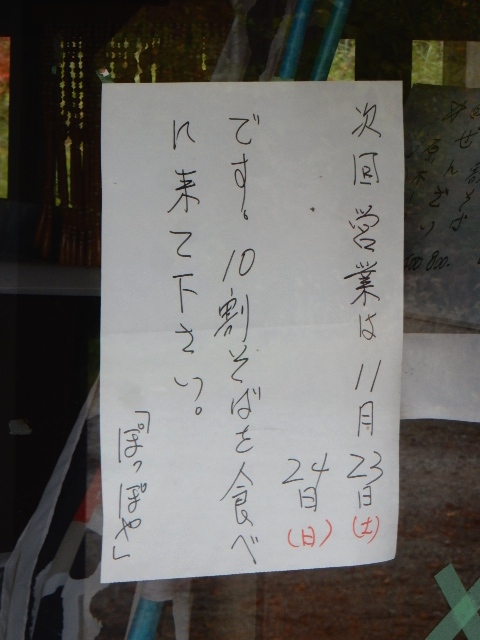 次回営業は11月23日(土)
24日(日)
です。10割そばを食べ
に来て下さい。
「ぽっぽや」